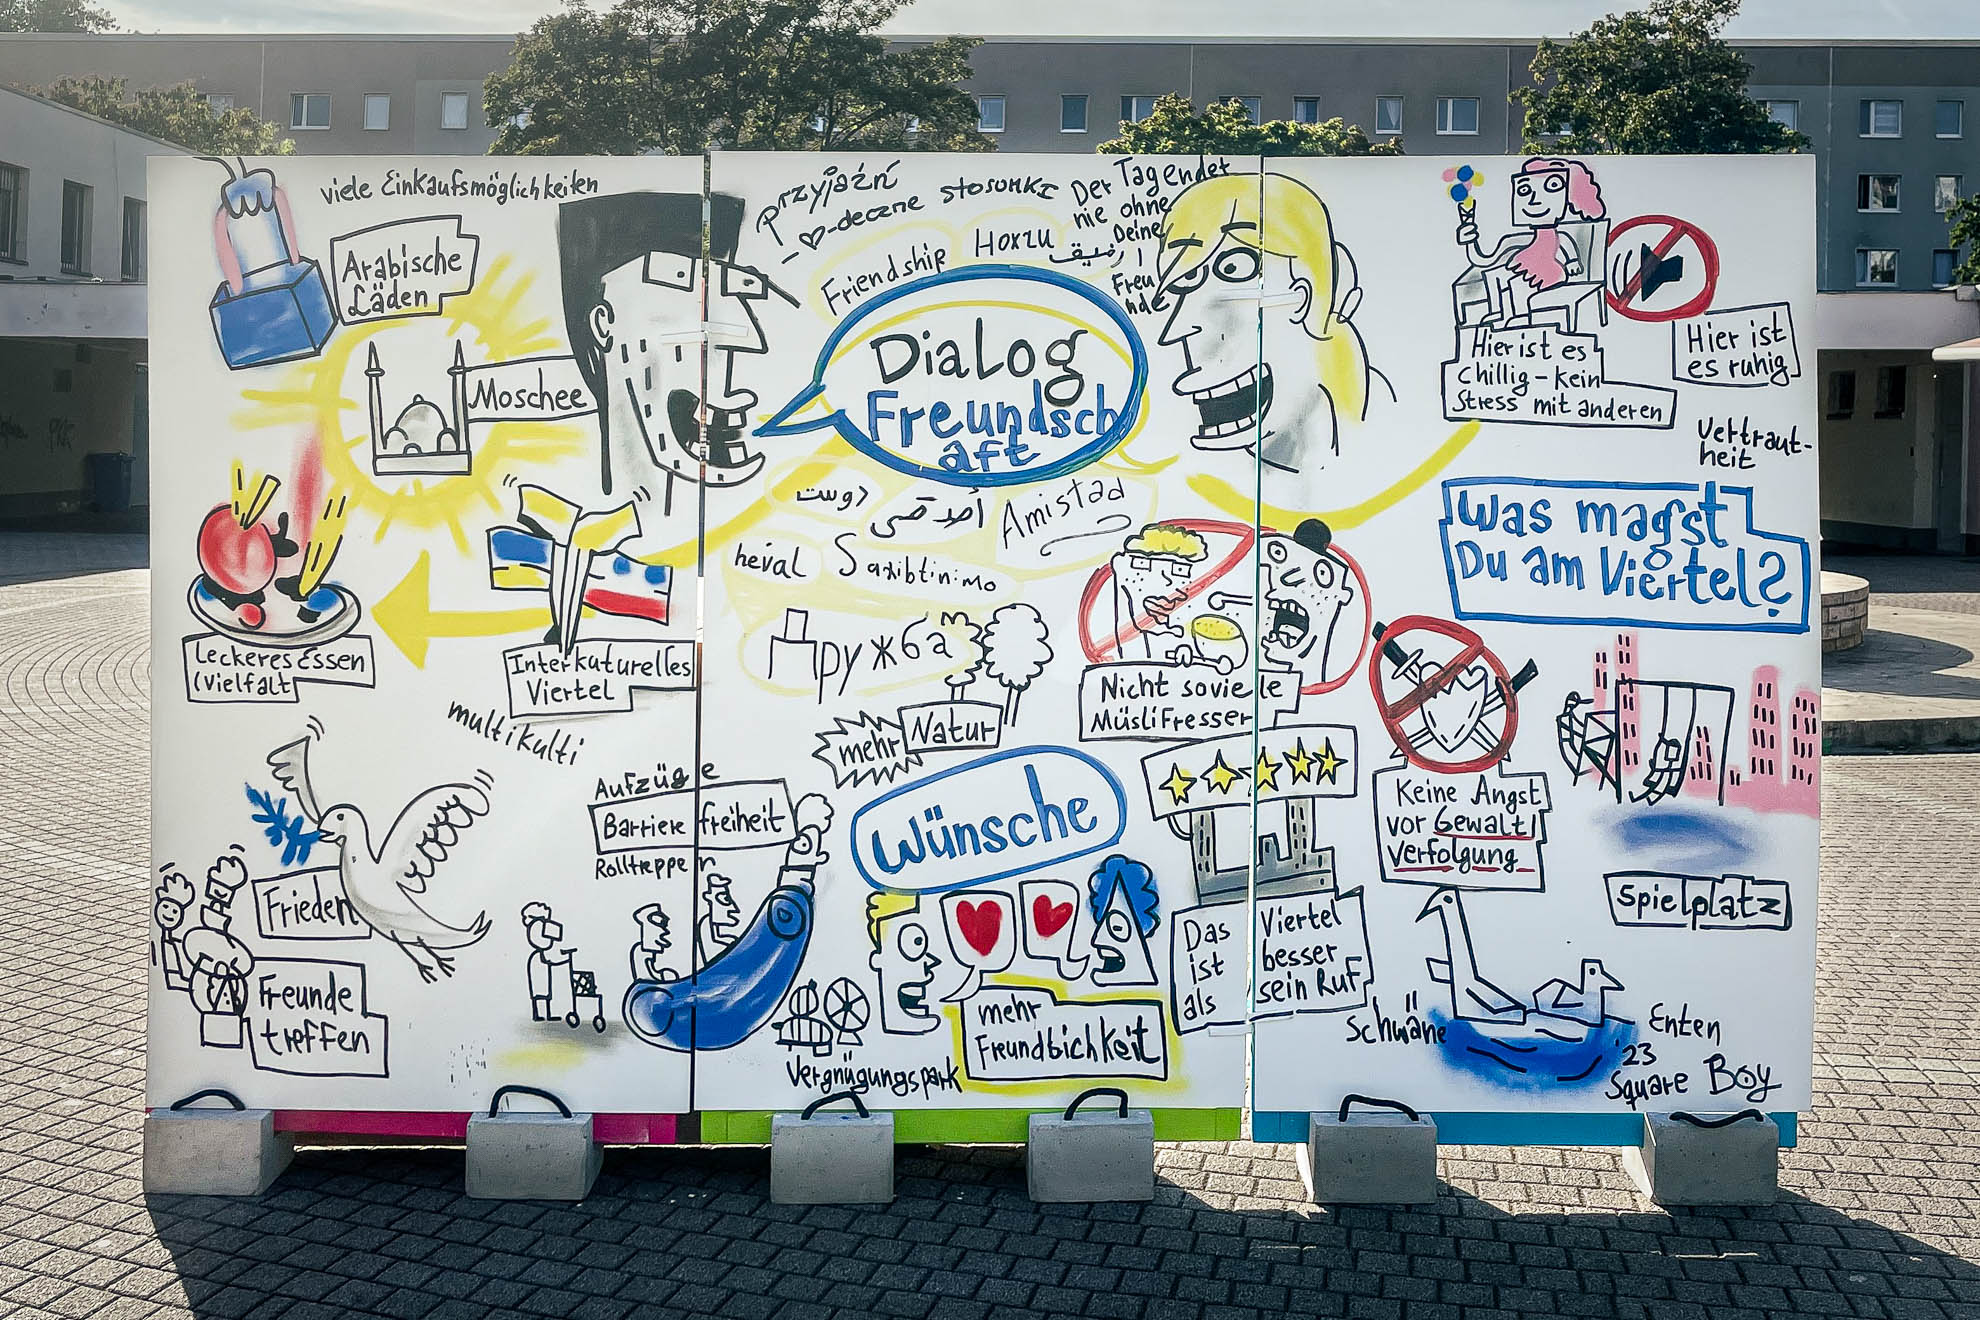 viele Einkaufsmöglichkeiten
Arabische
Läden
Moschee
Przyjaźń
Der Tag endet
nie ohne
Deine
Freu
nde
Friendship
رفيق
Dialog
Freundsch
aft
دوست
أصدقى
Amistad
heval
дружба
Hier ist es
Chillig - kein
Stress mit anderen
Hier ist
es ruhig
Vertraut-
heit
Was magst
Du am Viertel?
Leckeres Essen
(Vielfalt
Interkuturelles
Viertel
multikulti
mehr
Natur
Nicht soviele
Müslifresser
Keine Angst
vor Gewalt/
Verfolgung
Spielplatz
Aufzüge
Barrierefreiheit
Rolltreppen
Wünsche
Frieden
Freunde
treffen
Vergnügungspark
mehr
Freundlichkeit
Das Viertel
ist besser
als sein Ruf
Schwäne
Enten
'23
Square Boy